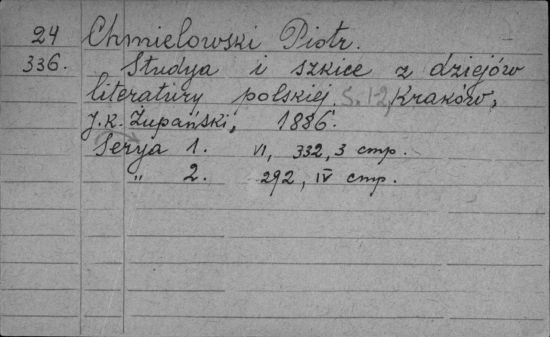 24 Chmielowski Piotr.
336. Studya i szkice z dziejów
literatury polskiej. S. 1-2, Kraków,
J. K. Żupański, 1886.
Serya 1. VI, 332, 3 стр.
„ 2. 292, IV стр.